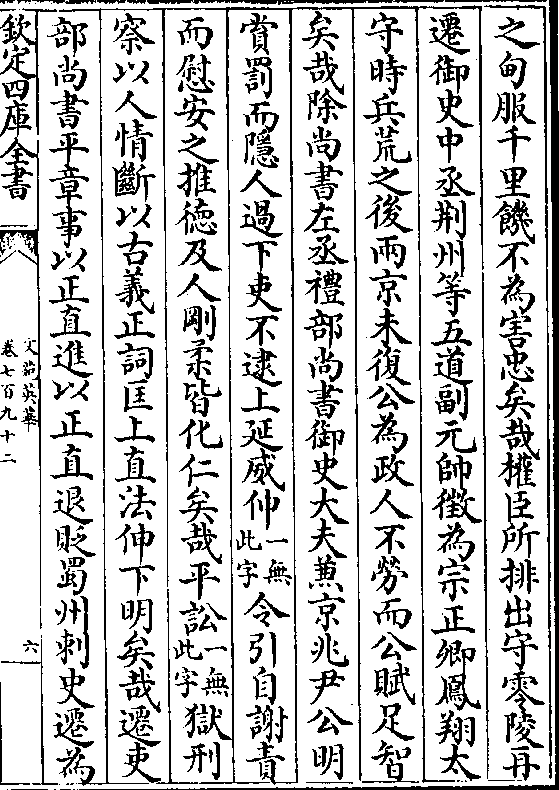 之甸服千里饑不為害忠矣哉權臣所排出守零陵再
遷御史中丞荆州等五道副元帥徵為宗正卿鳳翔太
守時兵荒之後兩京未復公為政人不勞而公賦足智
矣哉除尚書左丞禮部尚書御史大夫兼京兆尹公明
賞罰而隱人過下吏不逮上延威仲一無此字令引自謝責
而慰安之推德及人剛柔皆化仁矣哉平訟一無此字獄刑
察以人情斷以古義正詞匡上直法伸下明矣哉遷吏
部尚書平章事以正直進以正直退貶蜀州刺史遷為
欽定四庫全書
文苑英華
卷七百九十二
六